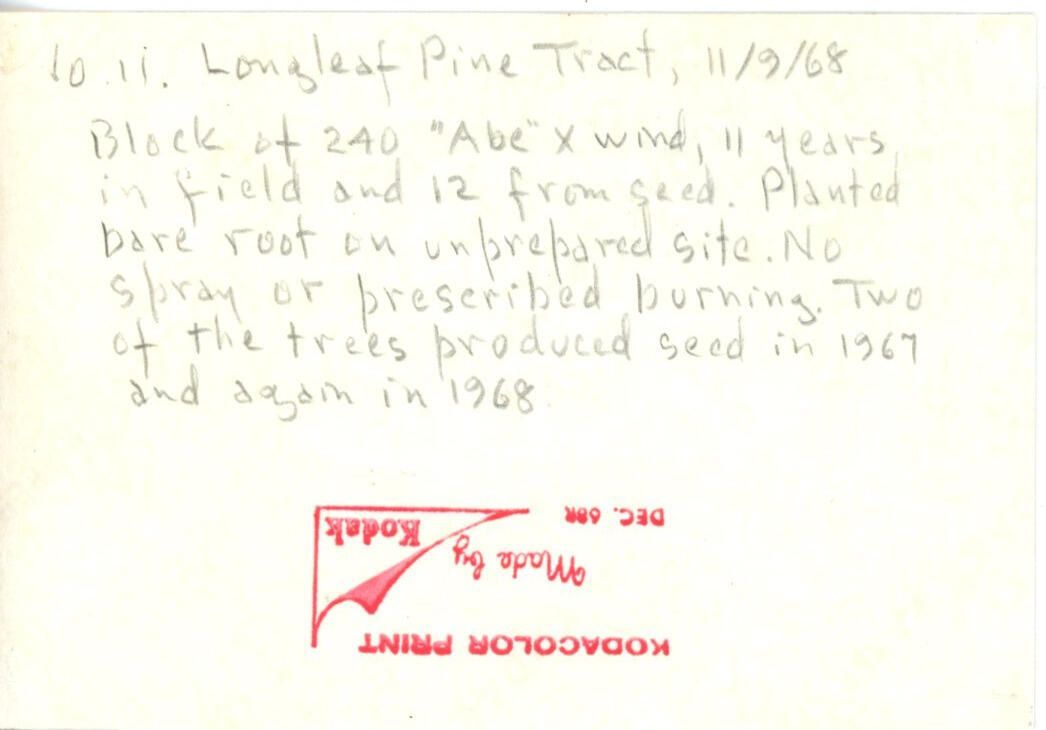 10.11. Longleaf Pine Tract, 11/9/68
Block of 240 "Abe" X wind, 11 years
in field and 12 from seed. Planted
bare root on unprepared site. No
spray or prescribed burning. Two
of the trees produced seed in 1967
and again in 1968.
KODACOLOR PRINT
Made by
Kodak
DEC. 68R